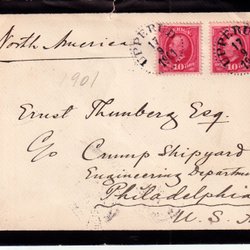 North America
1901
Ernst Thunberg Esq.
c/o Crump Shipyard
Engineering Departm
Philadelphia
U. S.
10
10